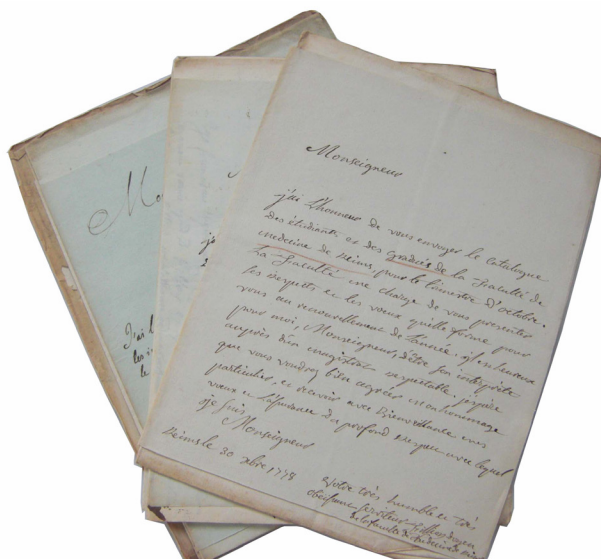 Monseigneur
j'ai l'honneur de vous envoyer le catalogue
des étudiants et des gradués de la faculté de
medecine de Reims, pour le trimestre d'octobre.
La faculté me charge de vous presenter
les respects et les voeux qu'elle forme pour
vous au renouvellement de l'année. il est heureux
pour moi, Monseigneur, d'être son interprète
auprès d'un magistrat respectable. j'espère
que vous voudrez bien agréer mon hommage
particulier, et recevoir avec bienveillance mes
voeux et l'assurance du profond respect avec lequel
je suis
Monseigneur
Reims le 30 xbre 1778
votre très humble et très
obeissant serviteur
J'ai l
les
le